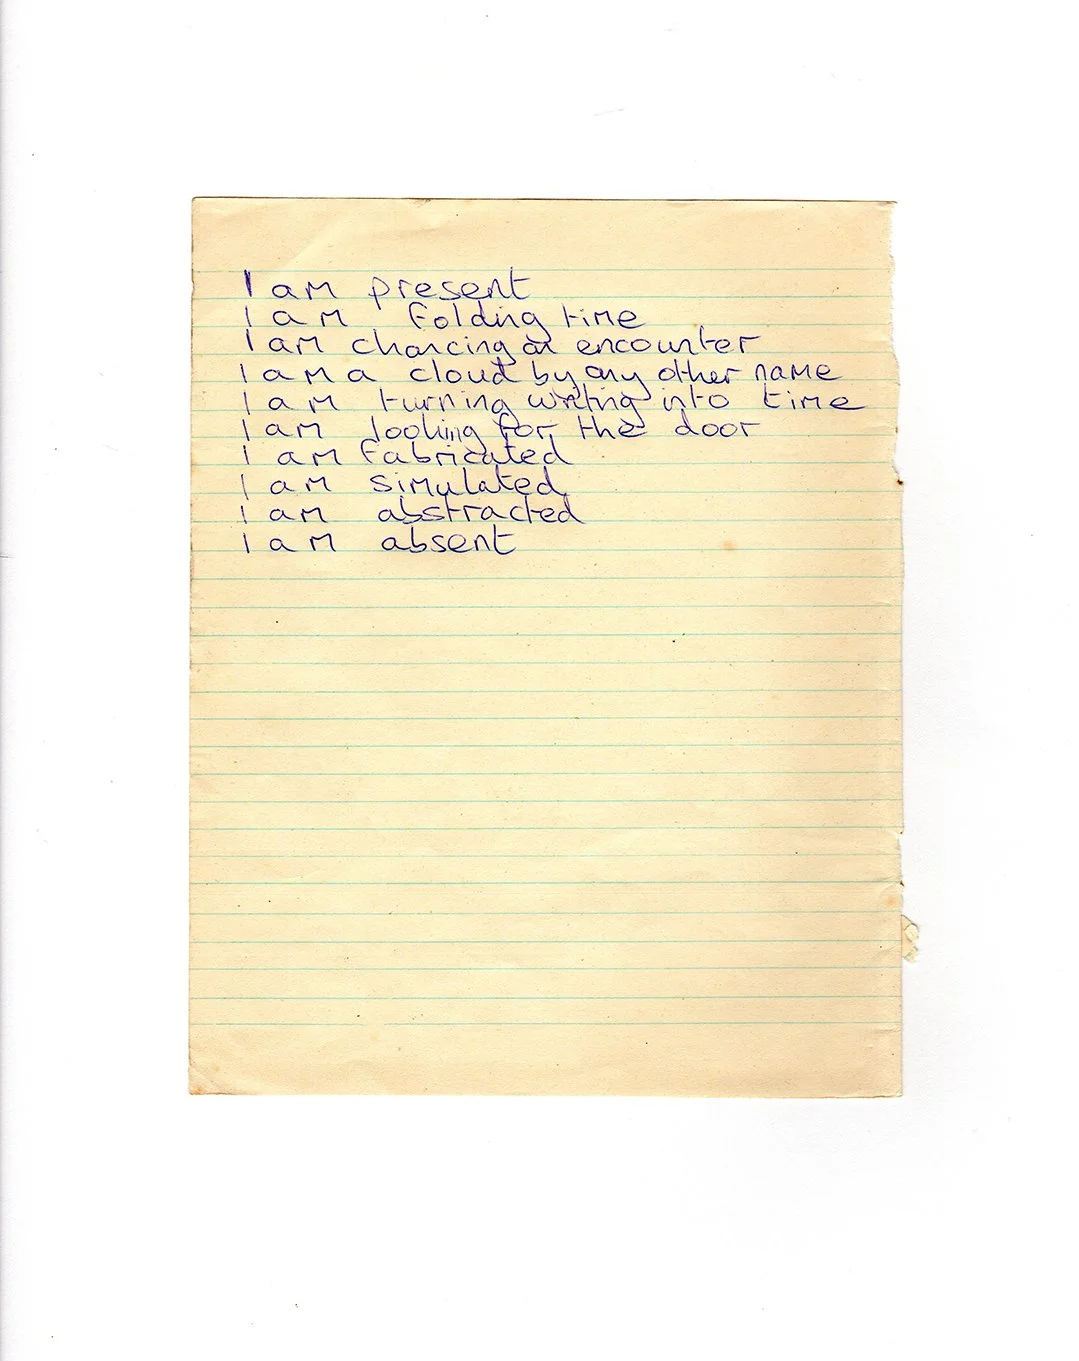 I am present
I am folding time
I am chancing an encounter
I am a cloud by any other name
I am turning writing into time
I am looking for the door
I am fabricated
I am simulated
I am abstracted
I am absent